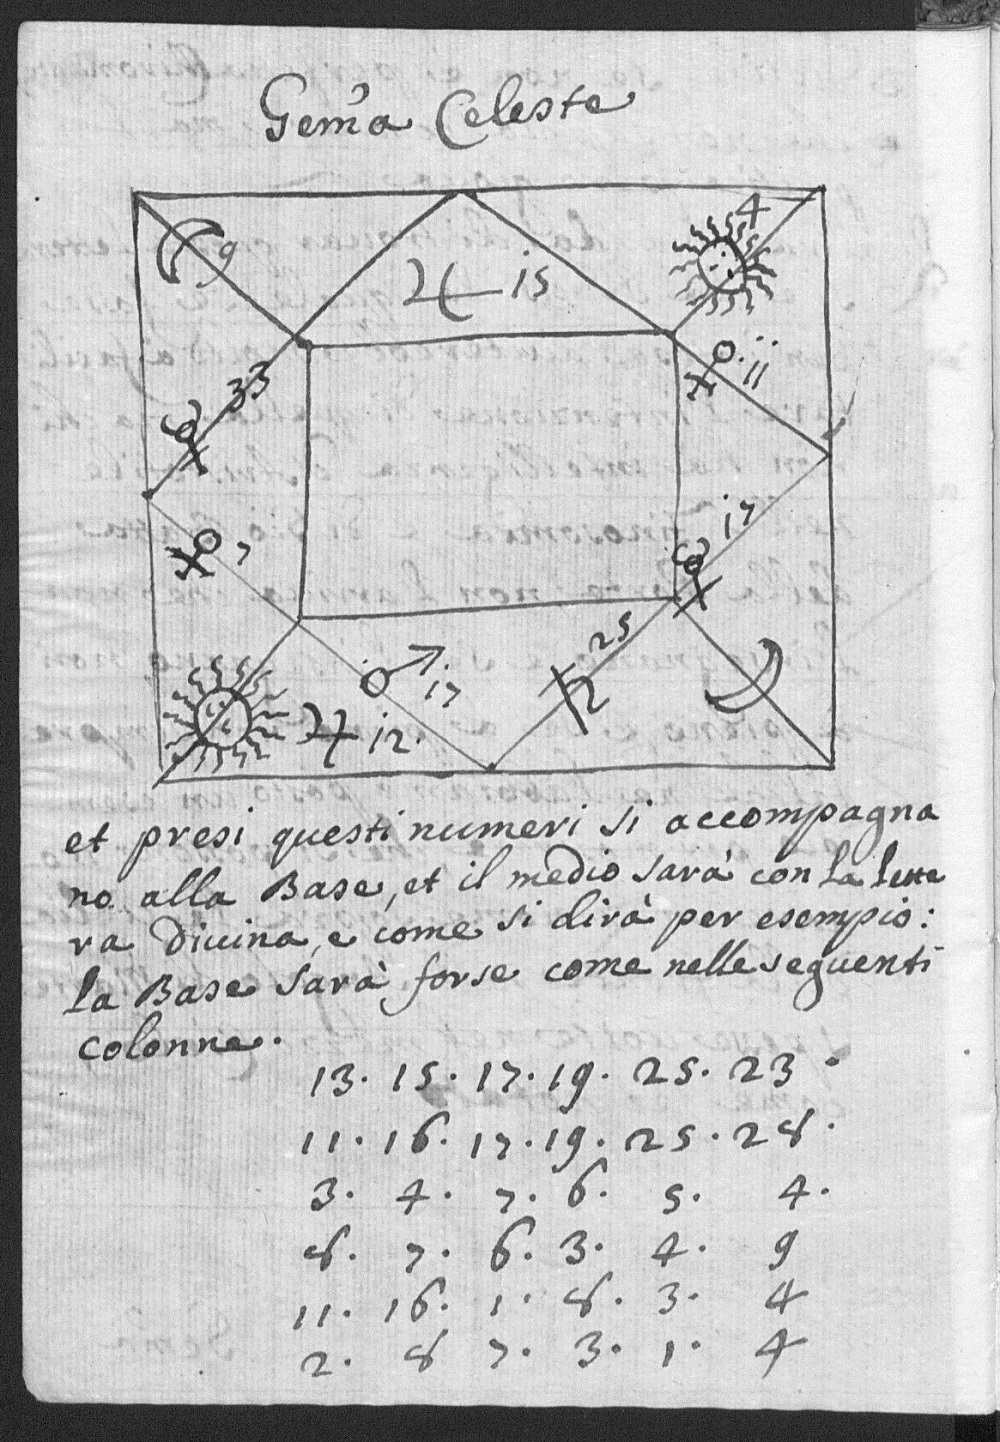 Gem̃a Celeste
☽ 9
♃ 15
4
☿ 33
♀ 11
♀ 7
☿ 17
♂ 17
♄ 25
♃ 12.
et presi questi numeri si accompagna
no alla Base, et il medio sarà con la lette
ra Divina, e come si dirà per esempio:
la Base sarà forse come nelle seguenti
colonne.
13. 15. 17. 19. 25. 23.
11. 16. 17. 19. 25. 28.
3. 4. 7. 6. 5. 4.
8. 7. 6. 3. 4. 9
11. 16. 1. 8. 3. 4
2. 8 7. 3. 1. 4